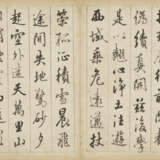 偽續真開茲後學
是以翹心淨土往遊
西域乘危遠邁杖
策孤征積雪晨飛
途間失地驚砂夕
起空外迷天萬里山